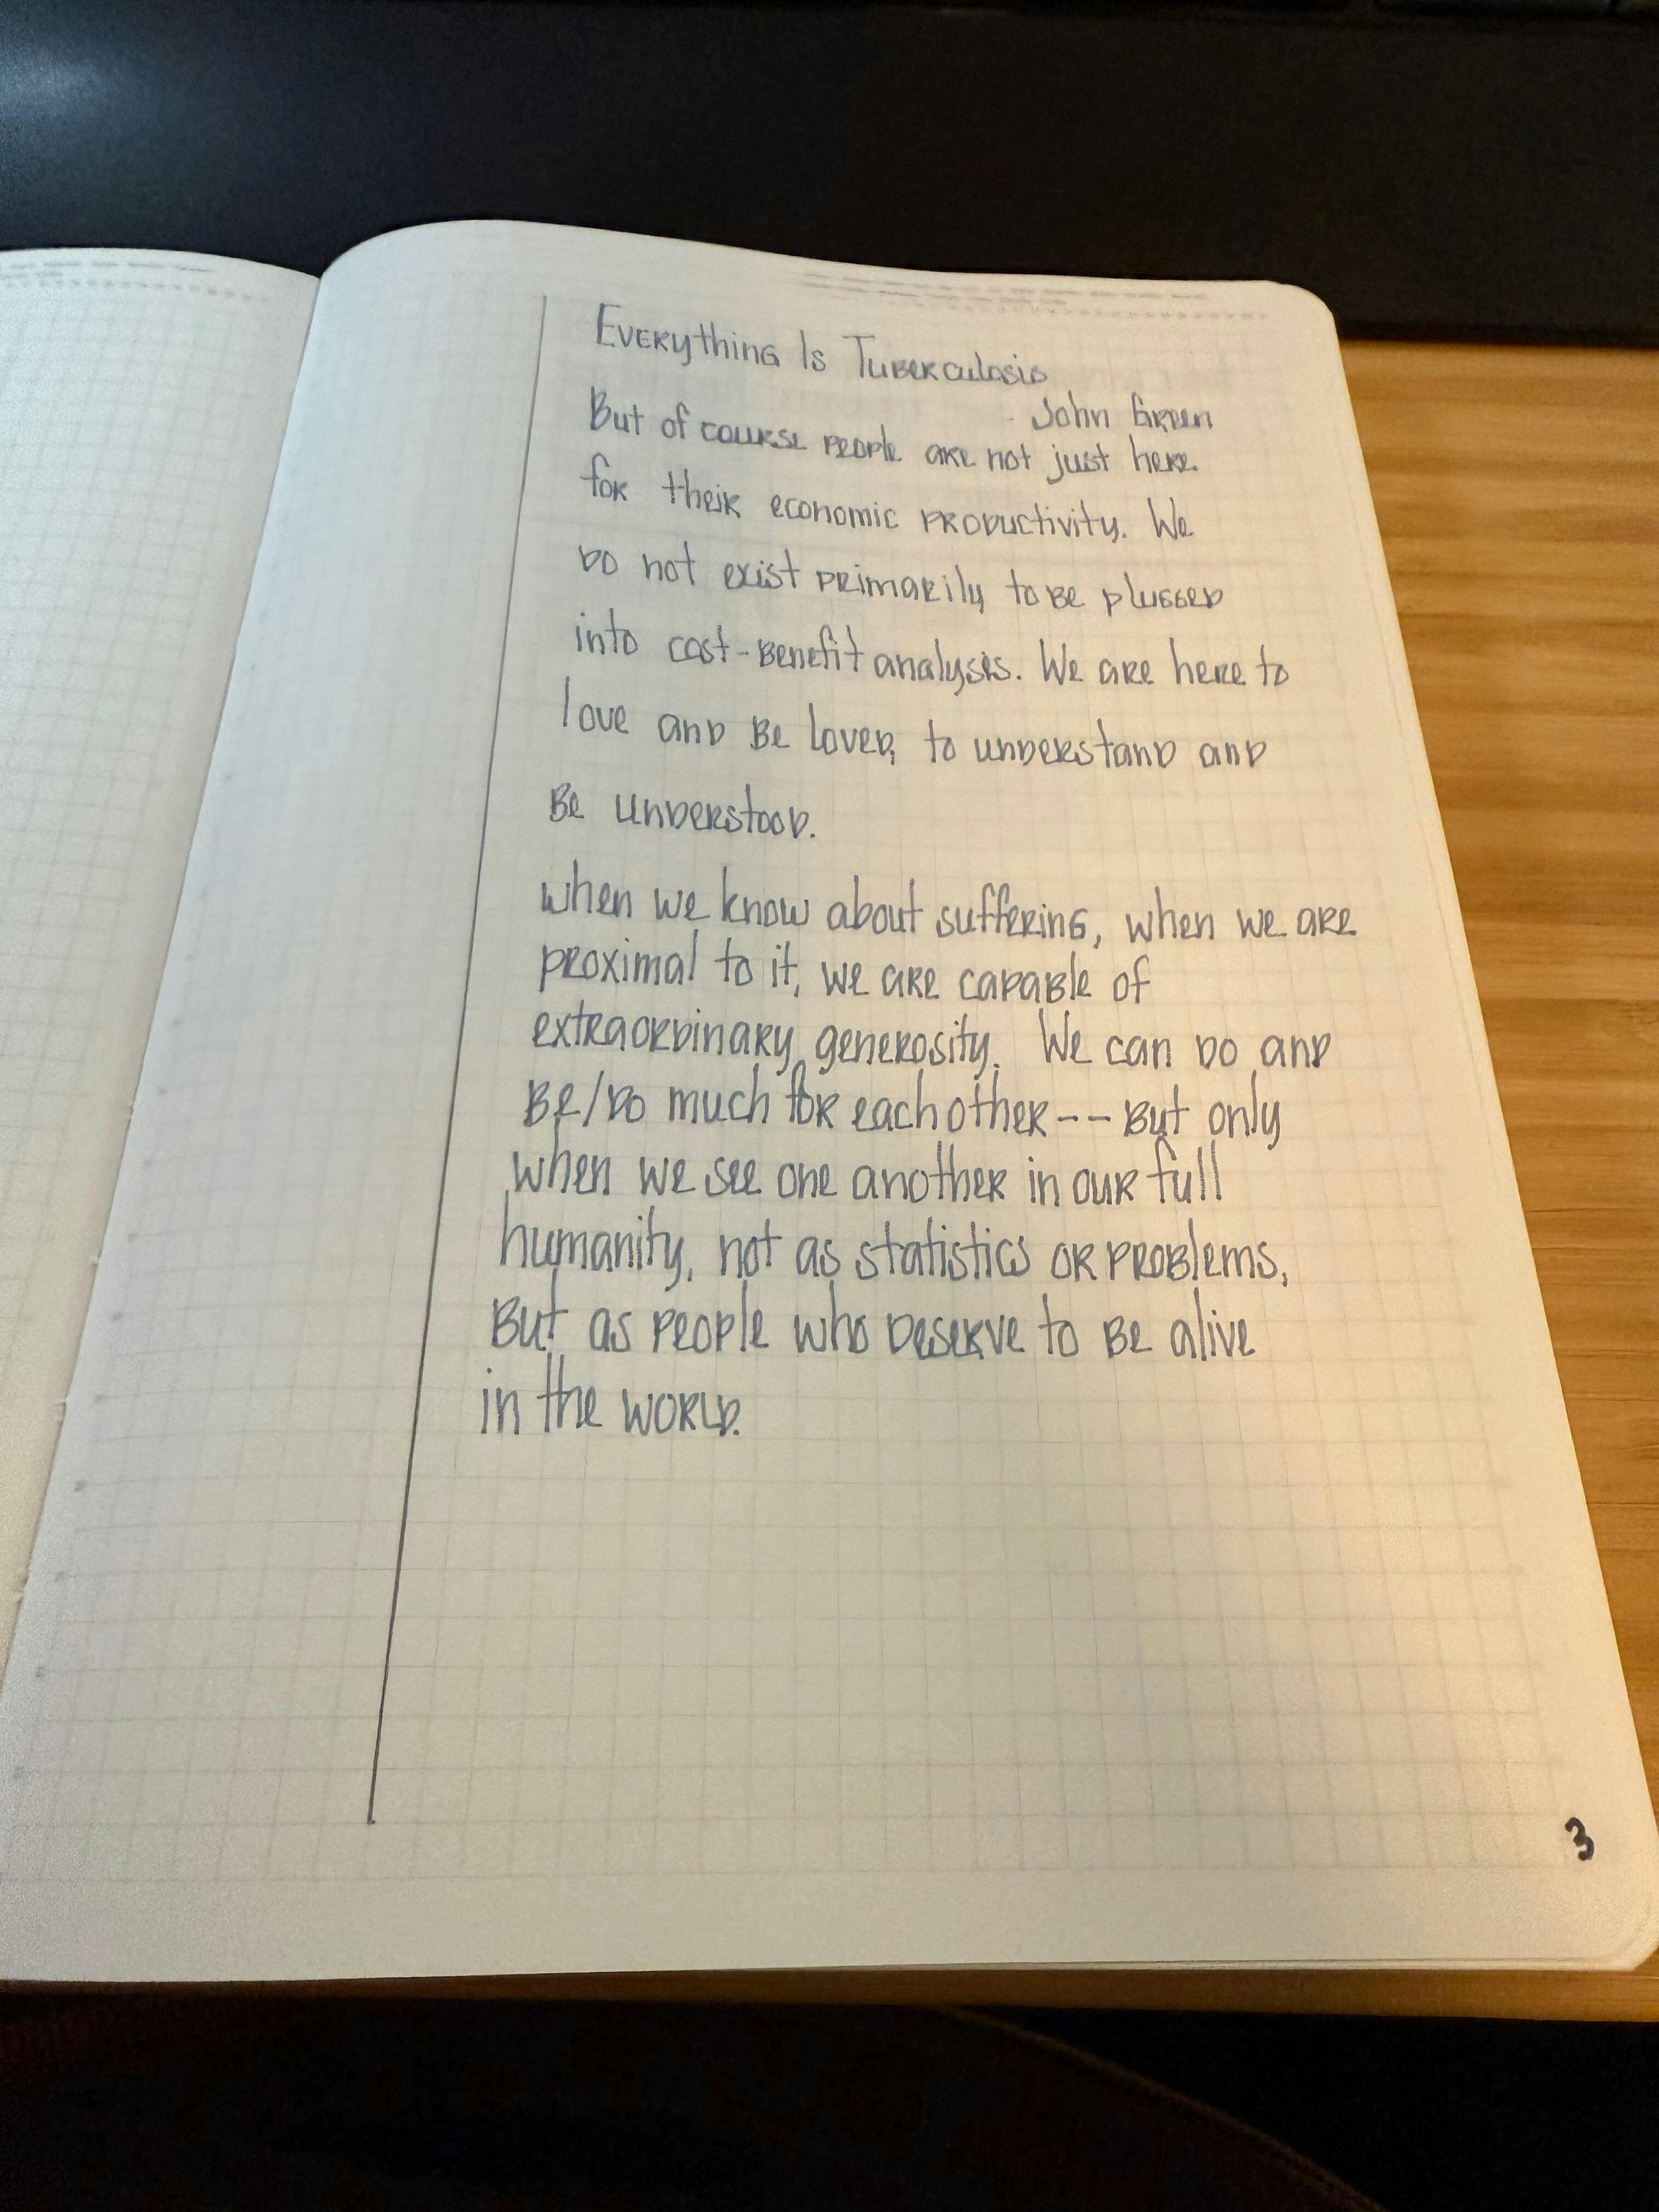 Everything Is Tuberculosis
- John Green
But of course people are not just here
for their economic productivity. We
do not exist primarily to be plugged
into cost-benefit analysis. We are here to
love and be loved, to understand and
be understood.
when we know about suffering, when we are
proximal to it, we are capable of
extraordinary generosity. We can do and
be/do much for each other -- but only
when we see one another in our full
humanity, not as statistics or problems,
but as people who deserve to be alive
in the world.
3